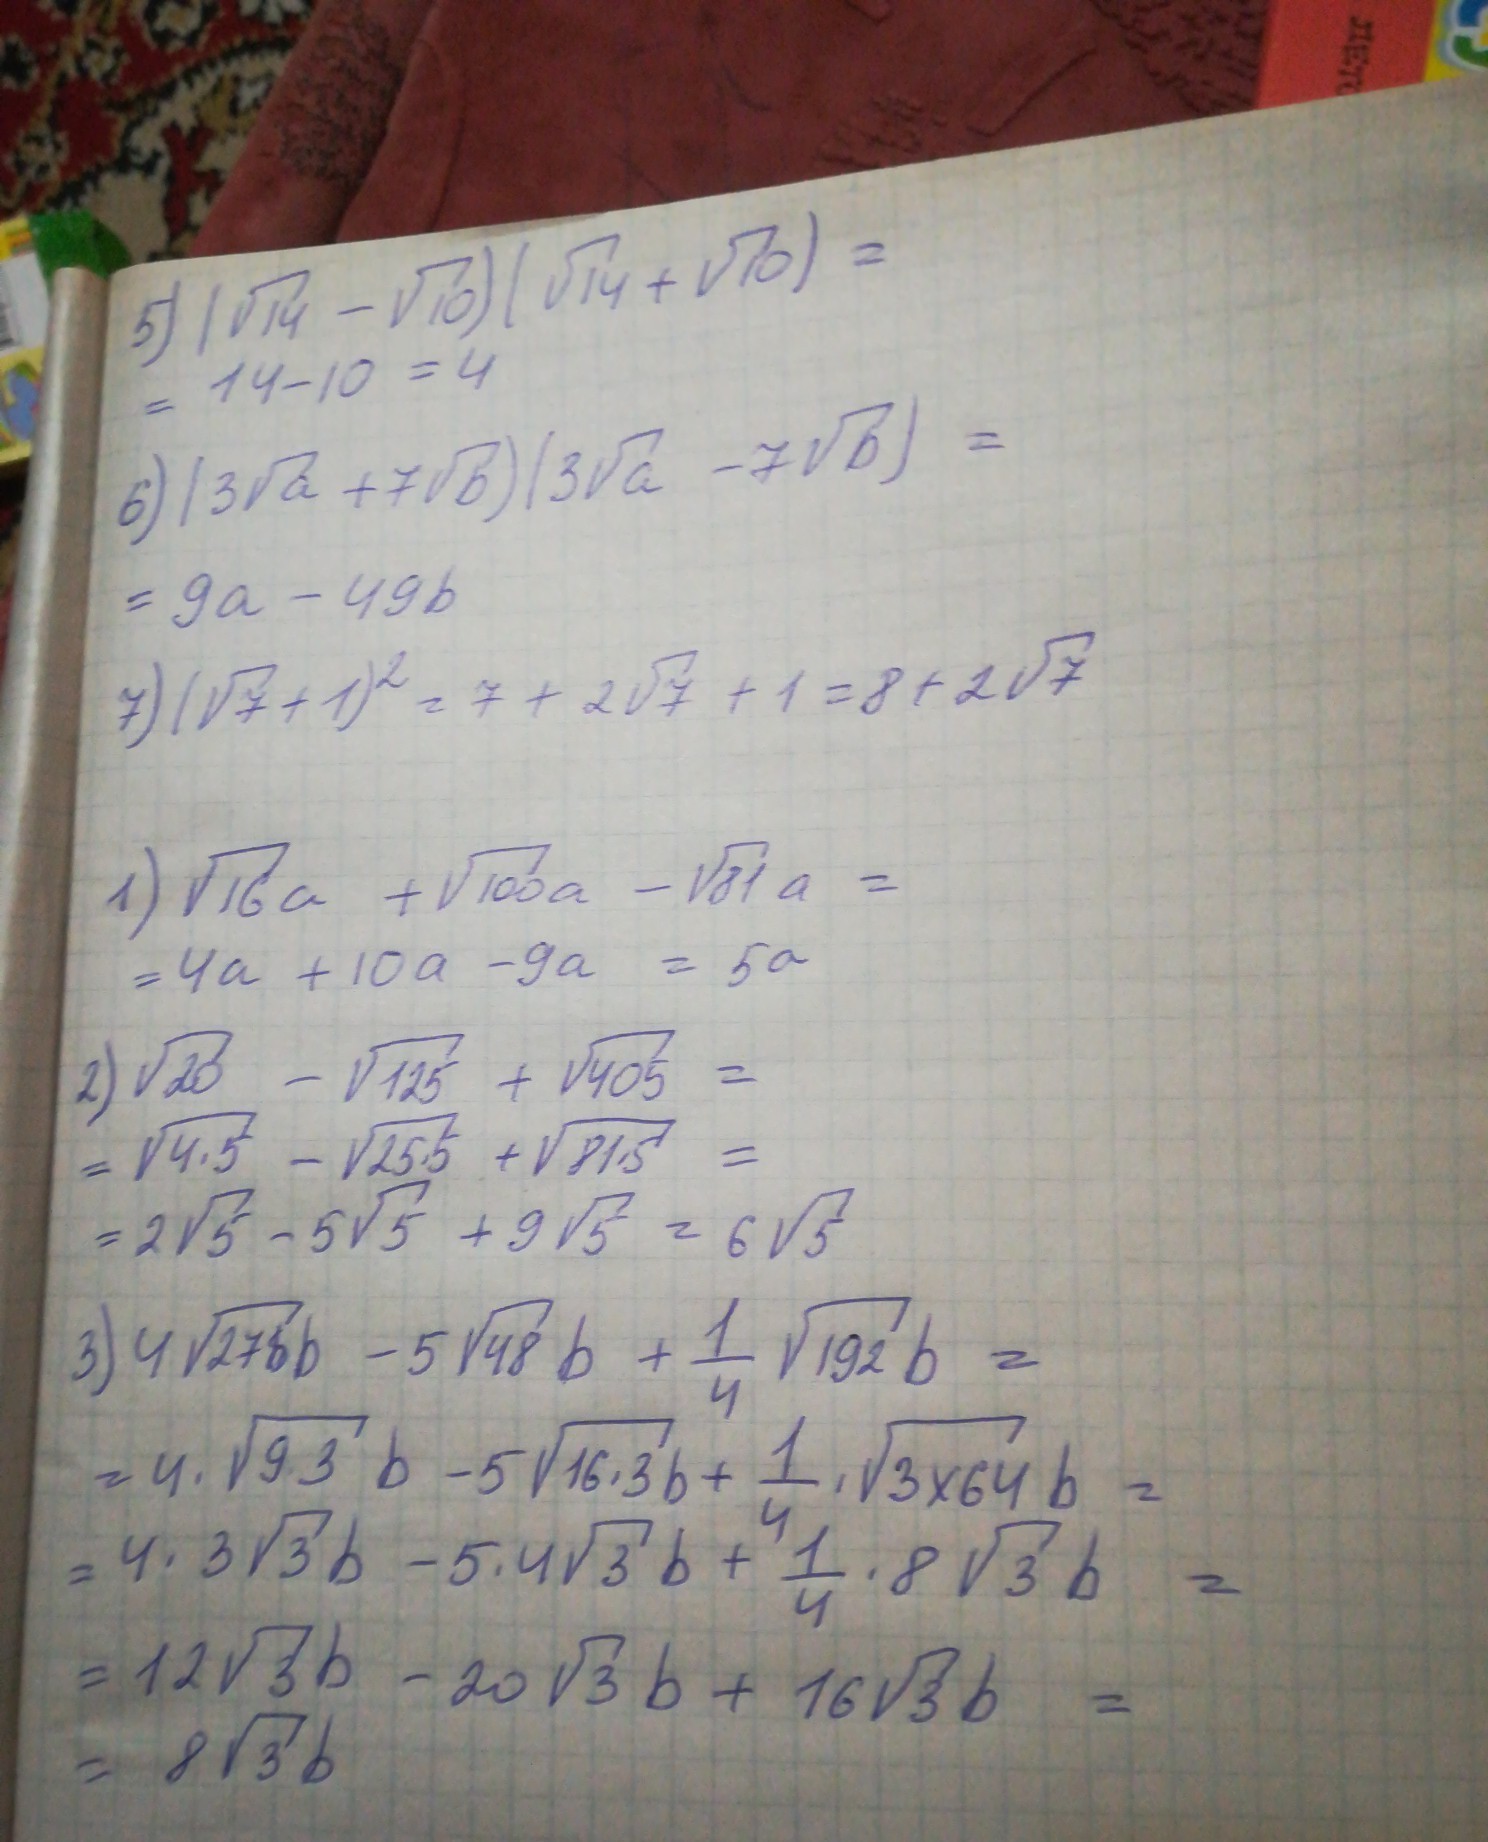 ЛЕТО
5) (√14 - √10)(√14 + √10) =
= 14-10 = 4
6) (3√a + 7√b)(3√a - 7√b) =
= 9a - 49b
7) (√7 + 1)² = 7 + 2√7 + 1 = 8 + 2√7
1) √16a + √100a - √81a =
= 4a + 10a - 9a = 5a
2) √20 - √125 + √405 =
= √4·5 - √25·5 + √81·5 =
= 2√5 - 5√5 + 9√5 = 6√5
3) 4√27b - 5√48 b + 1/4 √192 b =
= 4·√9·3 b - 5√16·3 b + 1/4 · √3×64 b =
= 4·3√3 b - 5·4√3 b + 1/4 · 8√3 b =
= 12√3 b - 20√3 b + 16√3 b =
= 8√3 b